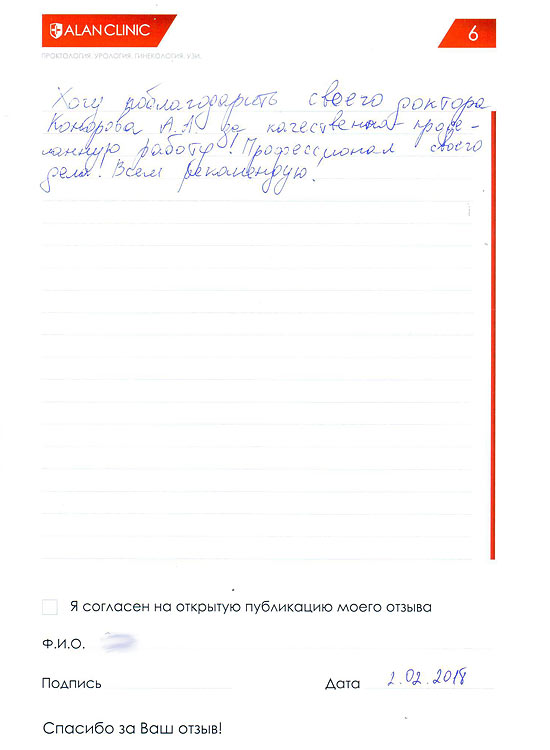 ALAN CLINIC
6
ПРОКТОЛОГИЯ. УРОЛОГИЯ. ГИНЕКОЛОГИЯ. УЗИ.
Хочу поблагодарить своего доктора
А.А за качественно проде-
ланную работу! Профессионал своего
дела! Всем рекомендую!
Я согласен на открытую публикацию моего отзыва
Ф.И.О.
Подпись
Дата 2.02.2018
Спасибо за Ваш отзыв!